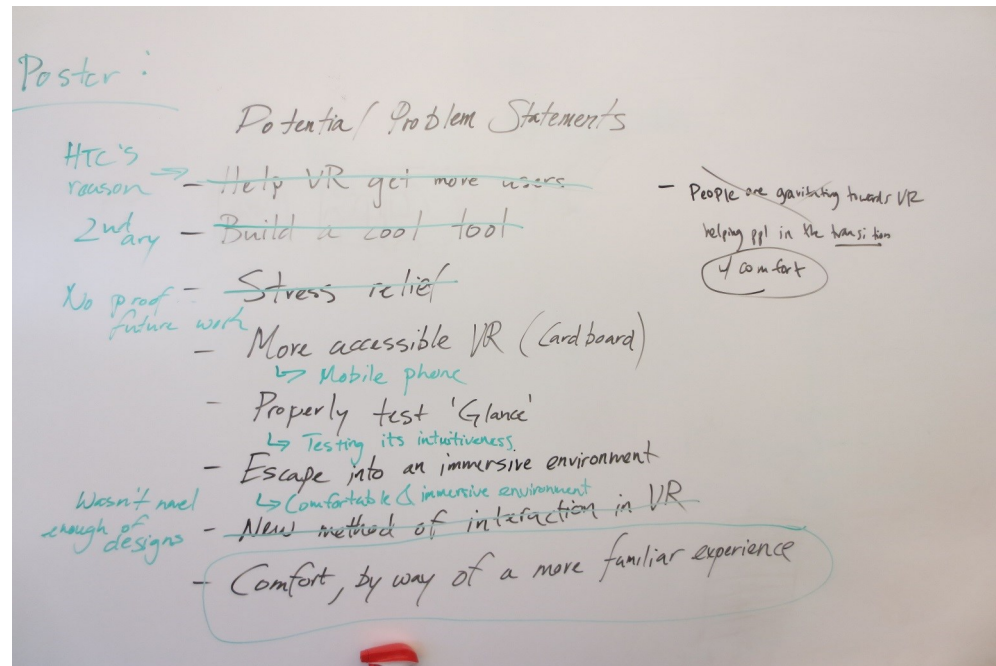 Poster :
Potential Problem Statements
HTC's
reason → - Help VR get more users
2nd
ary - Build a cool tool
- Stress relief
No proof
future work
- More accessible VR (Cardboard)
↳ Mobile phone
- Properly test 'Glance'
↳ Testing its intuitiveness
- Escape into an immersive environment
↳ Comfortable & immersive environment
Wasn't novel
enough of
designs
- New method of interaction in VR
- Comfort, by way of a more familiar experience
- People are gravitating towards VR
helping ppl in the transition
w/ comfort